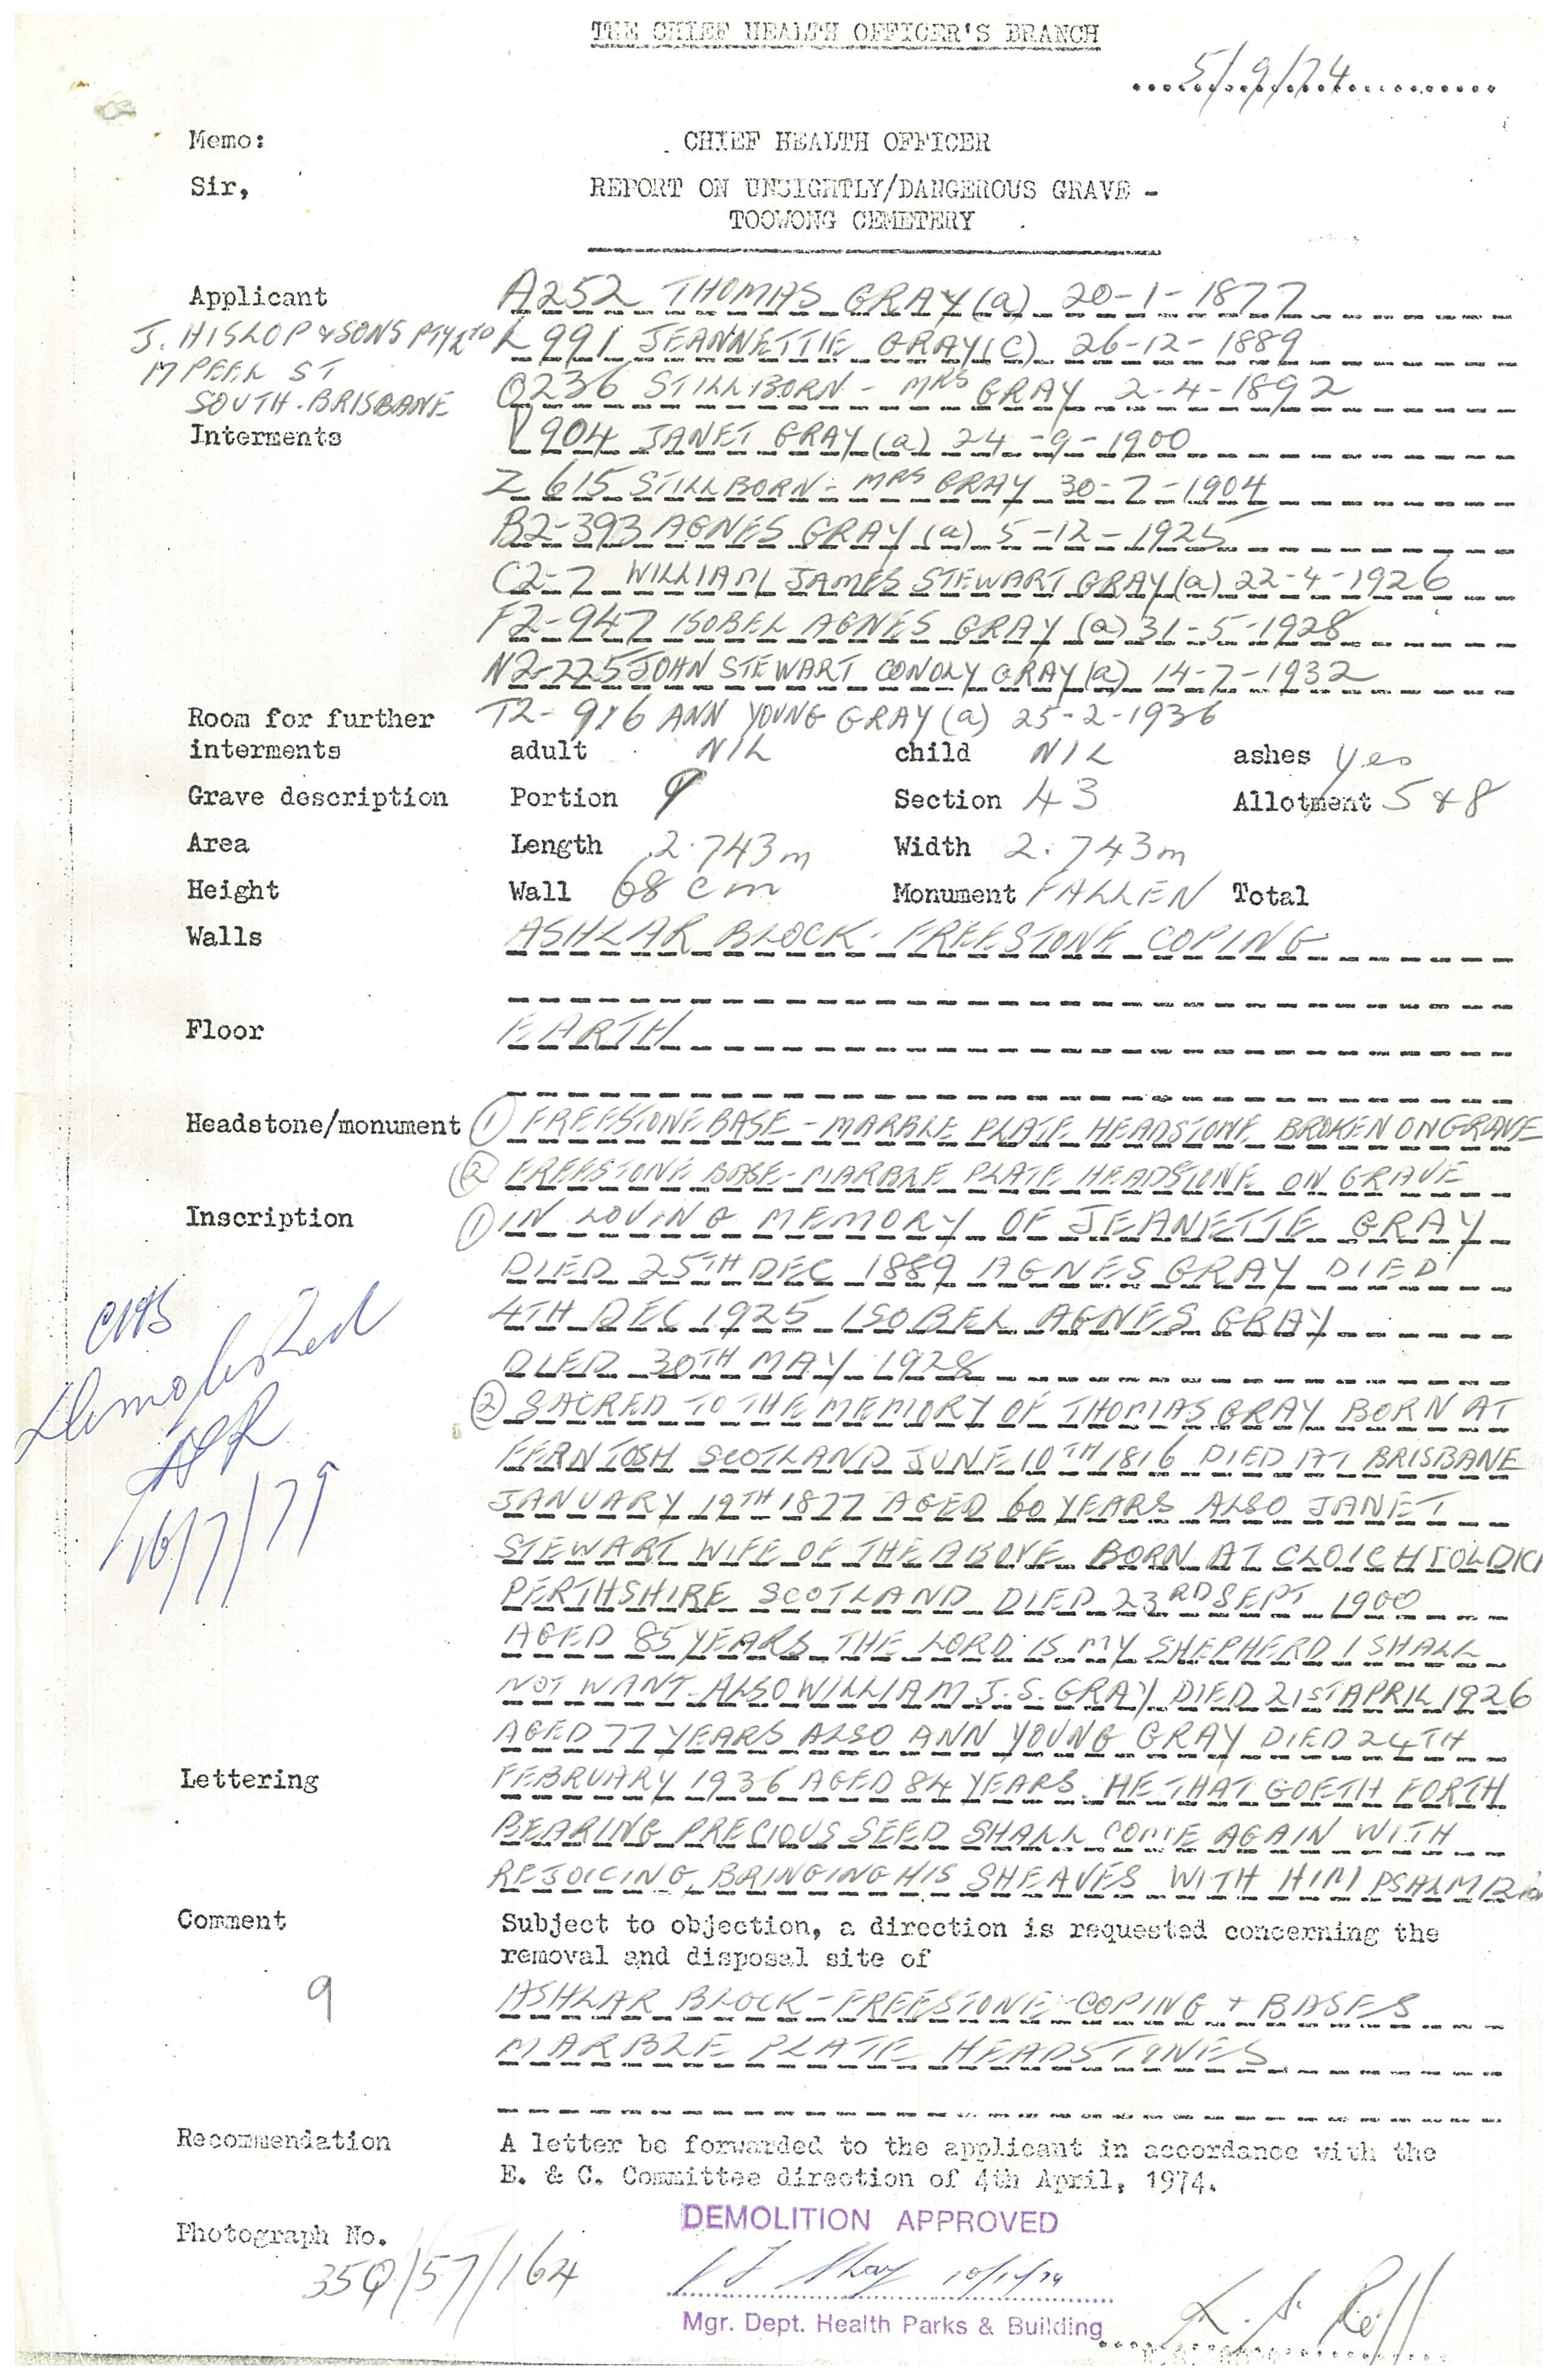 THE CHIEF HEALTH OFFICER'S BRANCH
5/9/74
Memo: CHIEF HEALTH OFFICER
Sir, REPORT ON UNSIGHTLY/DANGEROUS GRAVE -
TOOWONG CEMETERY
Applicant A252 THOMAS GRAY (a) 20-1-1877
J. HISLOP & SONS PTY LTD L 991 JEANNETTIE GRAY (C) 26-12-1889
17 PEEL ST
SOUTH-BRISBANE O236 STILLBORN - MRS GRAY 2-4-1892
Interments 904 JANET GRAY (a) 24-9-1900
Z 615 STILLBORN - MRS GRAY 30-7-1904
B2-393 AGNES GRAY (a) 5-12-1925
C2-7 WILLIAM JAMES STEWART GRAY (a) 22-4-1926
F2-947 ISOBEL AGNES GRAY (a) 31-5-1928
N2-225 JOHN STEWART CONOLY GRAY (a) 14-7-1932
Room for further T2-916 ANN YOUNG GRAY (a) 25-2-1936
interments adult NIL child NIL ashes yes
Grave description Portion 9 Section 43 Allotment 5 & 8
Area Length 2.743m Width 2.743m
Height Wall 68 cm Monument FALLEN Total
Walls ASHLAR BLOCK - FREESTONE COPING
Floor EARTH
Headstone/monument (1) FREESTONE BASE - MARBLE PLATE HEADSTONE BROKEN ON GRAVE
(2) FREESTONE BASE - MARBLE PLATE HEADSTONE ON GRAVE
Inscription (1) IN LOVING MEMORY OF JEANETTE GRAY
DIED 25TH DEC 1889 AGNES GRAY DIED
4TH DEC 1925 ISOBEL AGNES GRAY
DIED 30TH MAY 1928
(2) SACRED TO THE MEMORY OF THOMAS GRAY BORN AT
FERNTOSH SCOTLAND JUNE 10TH 1816 DIED AT BRISBANE
JANUARY 19TH 1877 AGED 60 YEARS ALSO JANET
STEWART WIFE OF THE ABOVE BORN AT
PERTHSHIRE SCOTLAND DIED 23RD SEPT 1900
AGED 85 YEARS THE LORD IS MY SHEPHERD I SHALL
NOT WANT. ALSO WILLIAM J.S. GRAY DIED 21ST APRIL 1926
AGED 77 YEARS ALSO ANN YOUNG GRAY DIED 24TH
Lettering FEBRUARY 1936 AGED 84 YEARS. HE THAT GOETH FORTH
BEARING PRECIOUS SEED SHALL COME AGAIN WITH
REJOICING, BRINGING HIS SHEAVES WITH HIM PSALM
Demolished
16/7/79
Comment Subject to objection, a direction is requested concerning the
removal and disposal site of
9 ASHLAR BLOCK - FREESTONE COPING + BASES
MARBLE PLATE HEADSTONES
Recommendation A letter be forwarded to the applicant in accordance with the
E. & C. Committee direction of 4th April, 1974.
DEMOLITION APPROVED
Photograph No.
35Q/57/164
Mgr. Dept. Health Parks & Building